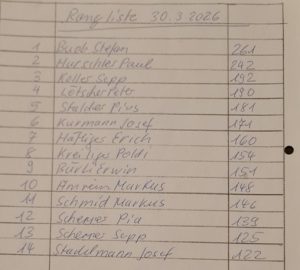 Rangliste 30.3.2026
1 Bucb Stefan 261
2 Hurschler Paul 242
3 Koller Sepp 192
4 Lötscher Peter 190
5 Stalder Pius 181
6 Kurmann Josef 171
7 Häfliger Erich 160
8 Kreiliger Poldi 154
9 Erwin 151
10 Amrein Markus 148
11 Schmid Markus 146
12 Scherrer Pia 139
13 Scherrer Sepp 125
14 Stadelmann Josef 122